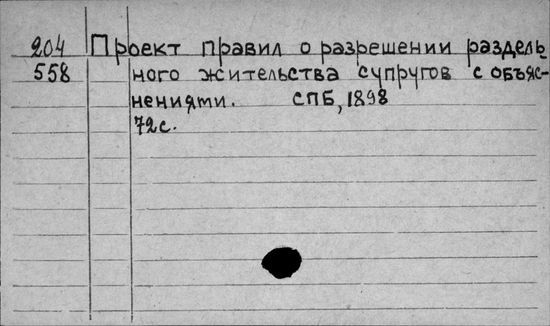 204 Проект правил о разрешении раздель
558 ного жительства супругов с объяс-
нениями. СПБ, 1898
72с.